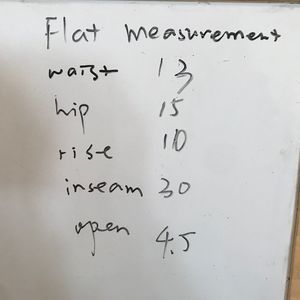 Flat measurement
waist 13
hip 15
rise 10
inseam 30
open 4.5